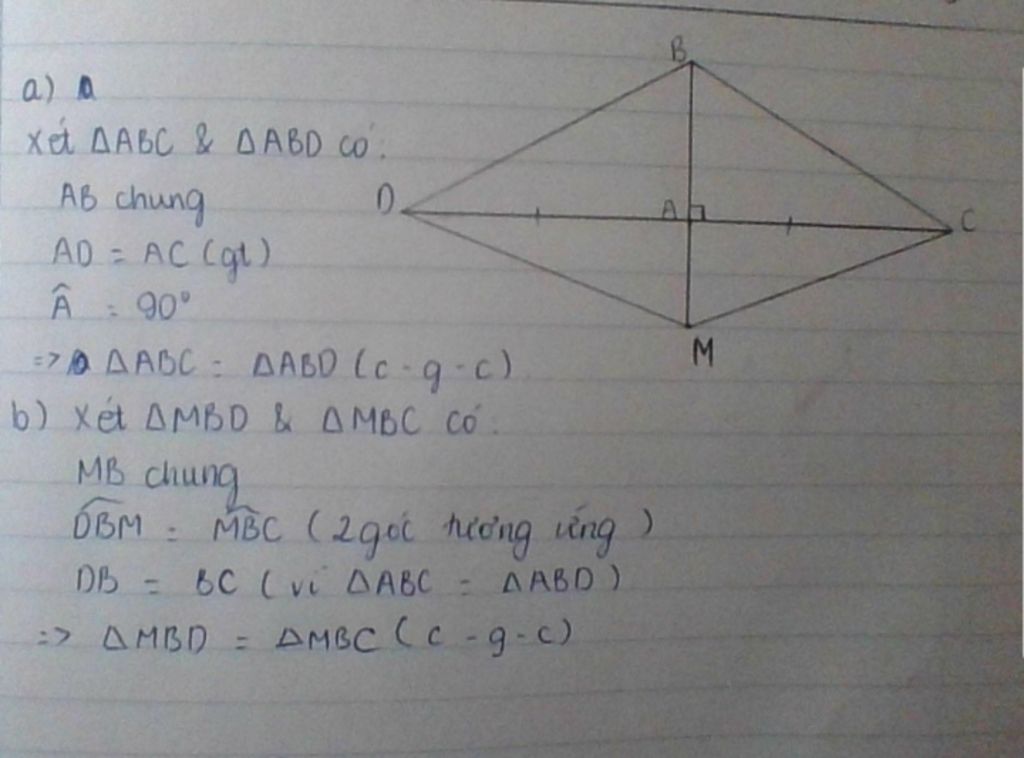 a)
Xét ΔABC & ΔABD có:
AB chung
AD = AC (gt)
Â = 90°
=> ΔABC = ΔABD (c - g - c)
b) Xét ΔMBD & ΔMBC có:
MB chung
D̂BM = M̂BC (2 góc tương ứng)
DB = BC (vì ΔABC = ΔABD)
=> ΔMBD = ΔMBC (c - g - c)
B
D
A
C
M